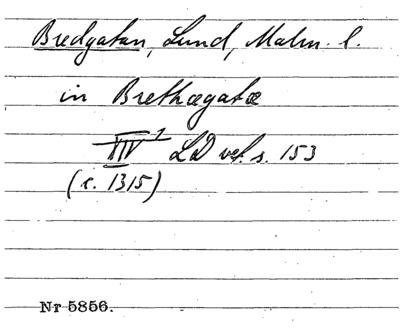 Bredgatan, Lund, Malm. l.
in Brethægatæ
XIV 1 LD vet. s. 153
(c. 1315)
Nr 5856.